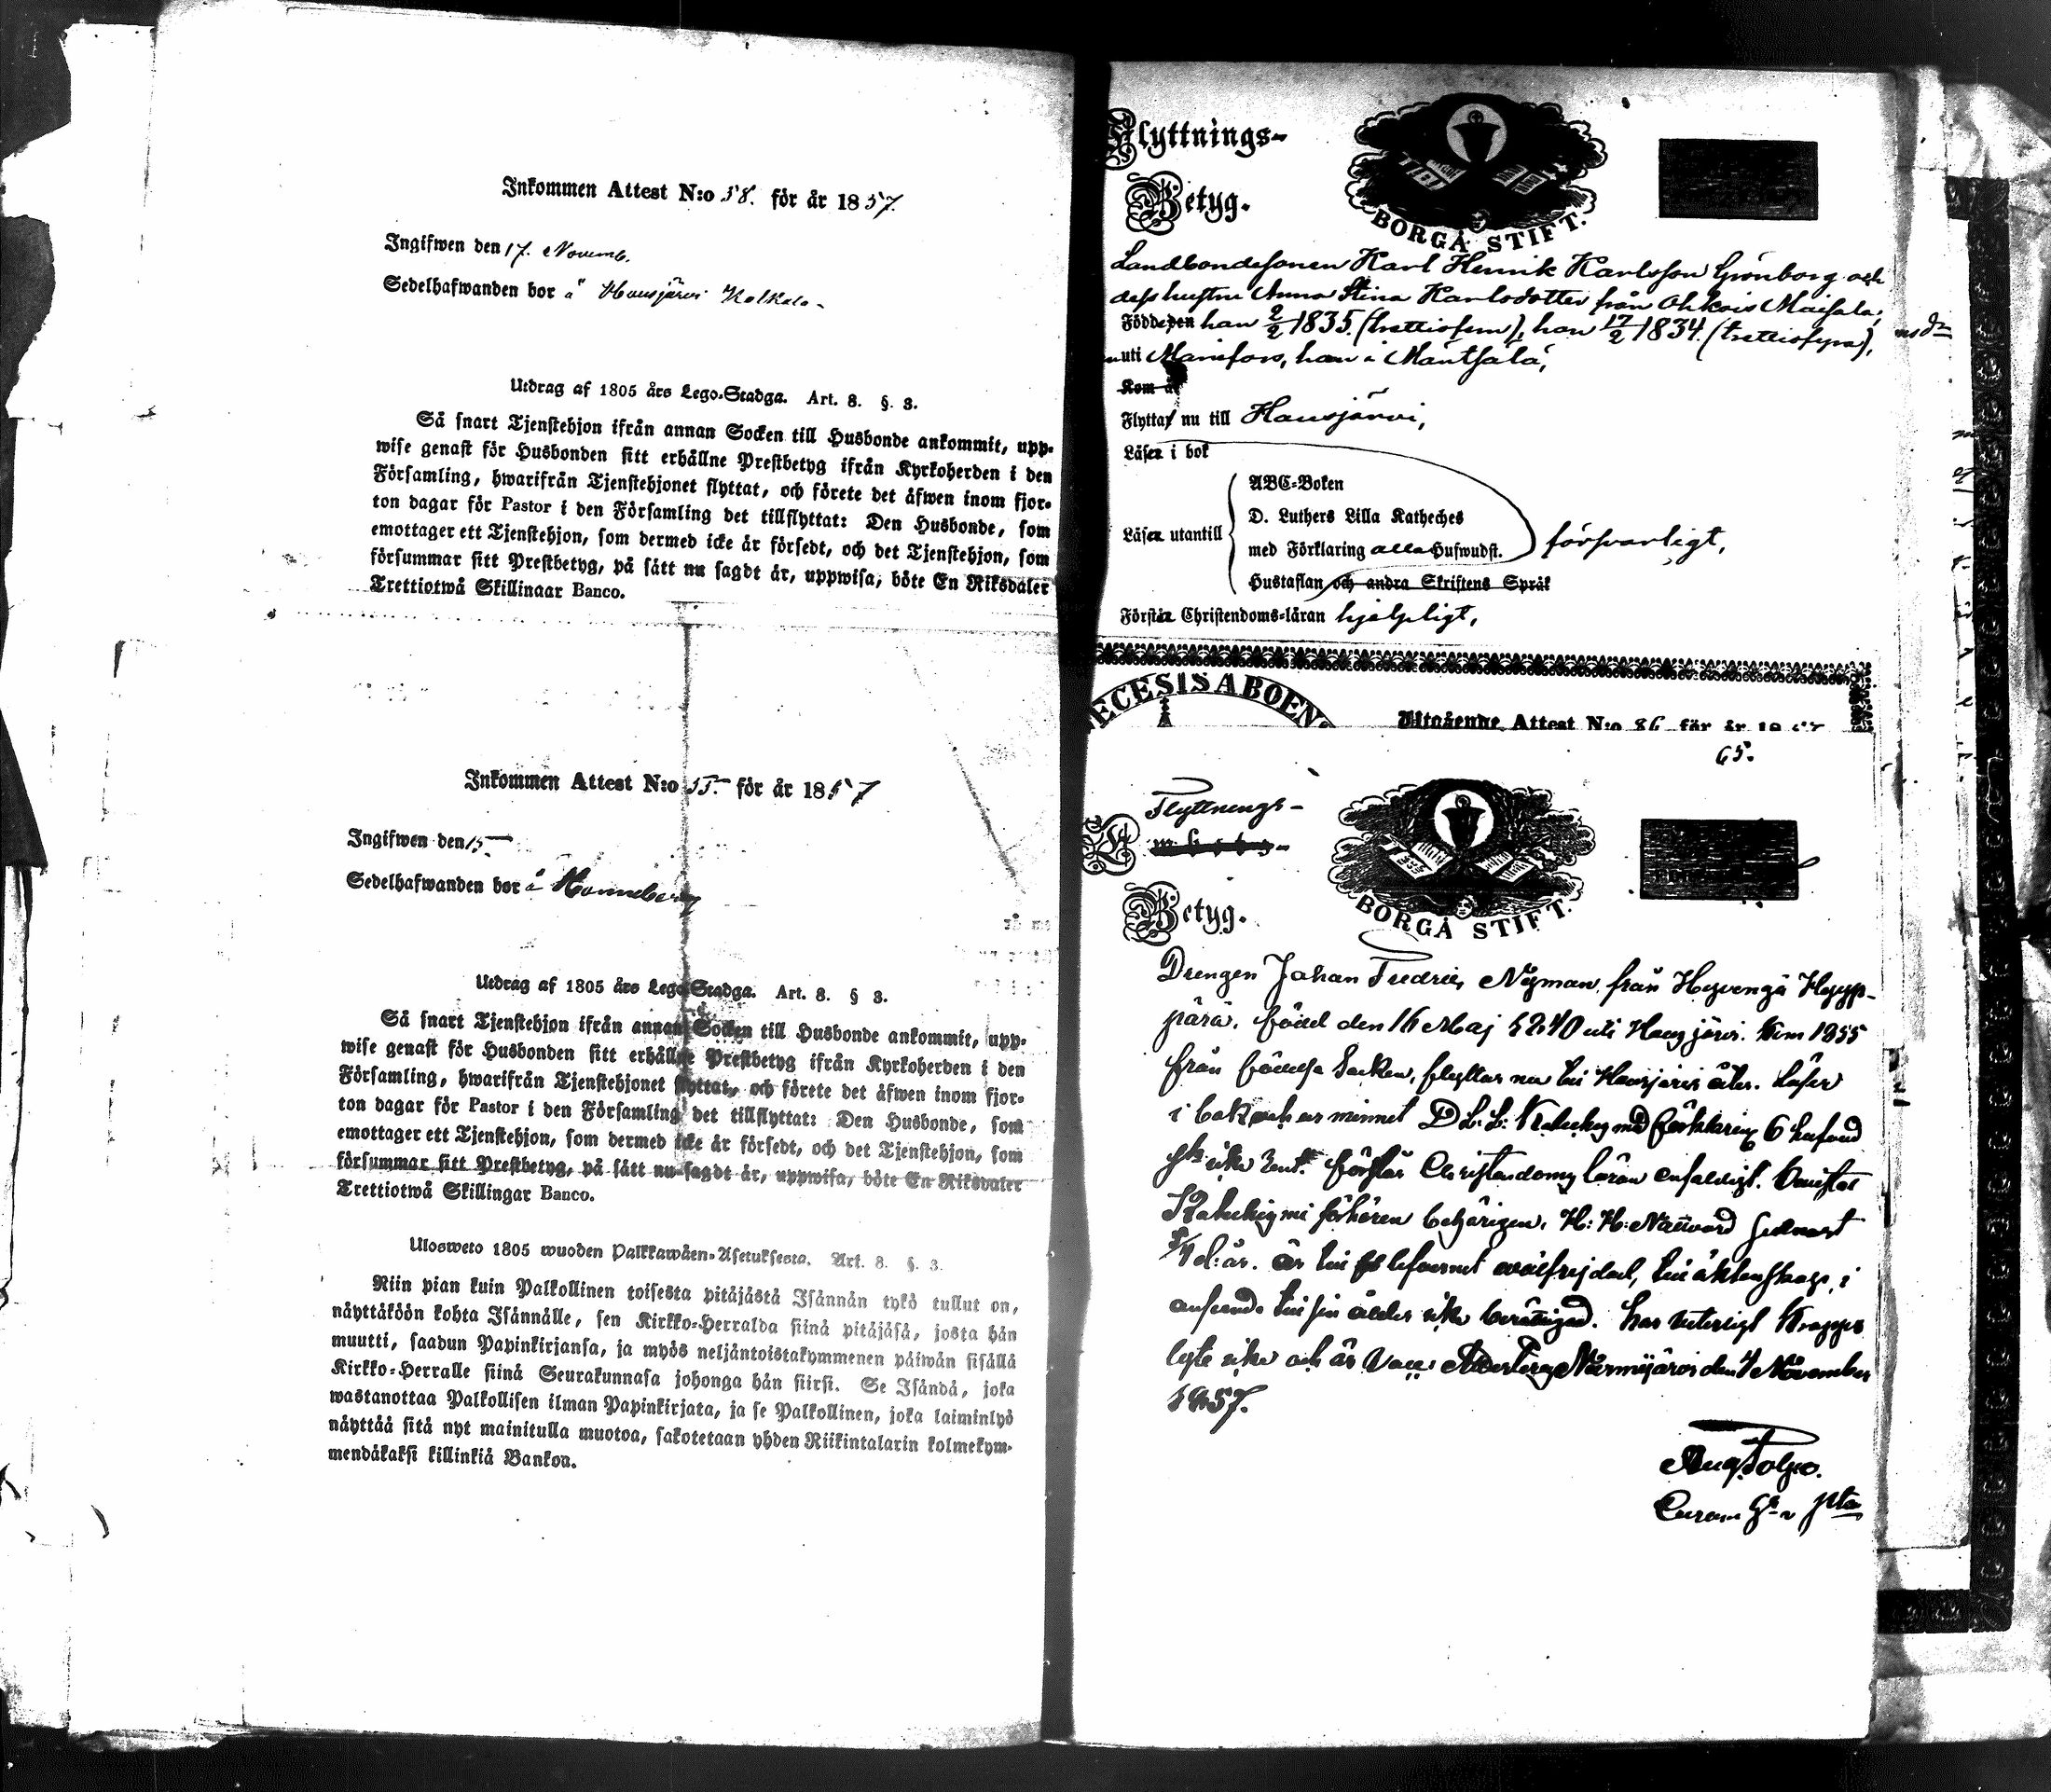 Inkommen Attest N:o 58. för år 1857.
Ingifwen den 17. Novemb.
Sedelhafwanden bor å Hausjärvi Kalkala
Utdrag af 1805 års Lego-Stadga. Art. 8. §. 3.
Så snart Tjenstehjon ifrån annan Socken till Husbonde ankommit, upp-
wise genast för Husbonden sitt erhållne Prestbetyg ifrån Kyrkoherden i den
Församling, hwarifrån Tjenstehjonet flyttat, och förete det äfwen inom fjor-
ton dagar för Pastor i den Församling det tillflyttat: Den Husbonde, som
emottager ett Tjenstehjon, som dermed icke är försedt, och det Tjenstehjon, som
försummar sitt Prestbetyg, på sätt nu sagdt är, uppwisa, böte En Riksdaler
Trettiotwå Skillingar Banco.
Inkommen Attest N:o 55. för år 1857
Ingifwen den 15
Sedelhafwanden bor å Hanneberg
Utdrag af 1805 års Lego-Stadga. Art. 8. § 3.
Så snart Tjenstehjon ifrån annan Socken till Husbonde ankommit, upp-
wise genast för Husbonden sitt erhållne Prestbetyg ifrån Kyrkoherden i den
Församling, hwarifrån Tjenstehjonet flyttat, och förete det äfwen inom fjor-
ton dagar för Pastor i den Församling det tillflyttat: Den Husbonde, som
emottager ett Tjenstehjon, som dermed icke är försedt, och det Tjenstehjon, som
försummar sitt Prestbetyg, på sätt nu sagdt är, uppwisa, böte En Riksdaler
Trettiotwå Skillingar Banco.
Ulosweto 1805 wuoden Palkkawäen-Asetuksesta. Art. 8. §. 3.
Niin pian kuin Palkollinen toisesta pitäjästä Isännän tykö tullut on,
näyttäköön kohta Isännälle, sen Kirkko-Herralda siinä pitäjäsä, josta hän
muutti, saadun Papinkirjansa, ja myös neljäntoistakymmenen päiwän sisällä
Kirkko-Herralle siinä Seurakunnasa johonga hän siirsi. Se Isändä, joka
wastanottaa Palkollisen ilman Papinkirjata, ja se Palkollinen, joka laiminlyö
näyttää sitä nyt mainitulla muotoa, sakotetaan yhden Riikintalarin kolmekym-
mendäkaksi killinkiä Bankou.
Flyttnings-
Betyg.
BORGÅ STIFT.
Landbondesonen Karl Henrik Karlsson Grönborg och
dess hustru Anna Stina Karlsdotter från Ohkois Maisala,
Födde den han 2/2 1835. (trettiofem), hon 17/2 1834. (trettiofyra),
uti Mariefors, hon i Mäntsälä,
Kom å
Flytta nu till Hausjärvi,
Läser i bok
ABC-Boken
D. Luthers Lilla Katheches
Läser utantill
med Förklaring alla Hufwudst.
försvarligt,
Hustaflan och andra Skriftens Språk
Förstår Christendoms-läran hjelpligt,
ECESIS ABOEN
Utgående Attest N:o 86 för år 1857
65.
Flyttnings-
Betyg.
BORGÅ STIFT.
Drengen Johan Fredric Nyman från Hyvengä Hyyp-
pärä, född den 16 Maj 1840 uti Hausjärvi. Kom 1855
från födelse Socken, flyttar nu till Hausjärvi åter. Läser
i bok och ur minnet D. L. L: Katekes med förklaring 6 hufvud
Förstår Christendoms läran enfaldigt. Bevistat
Katekismi förhören behörigen. H: H: Nattvard senast
d: år. är till lefvernet wälfrejdad, till äktenskap, i
anseende till sin ålder icke berättigad. har Koppor
icke och är Vacc: Attesterar Nurmijärvi den 4 November
1857.